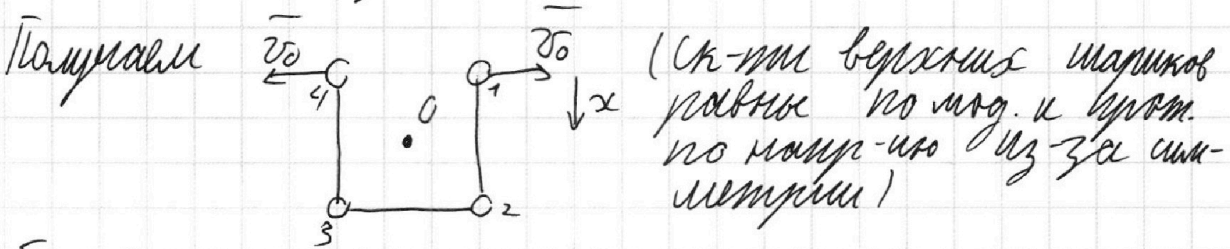 Получаем v₀ v₀ (Ск-ти верхних шариков
4 1 O x равны по мод. и прот.
по напр-ию из-за сим-
3 2 метрии)